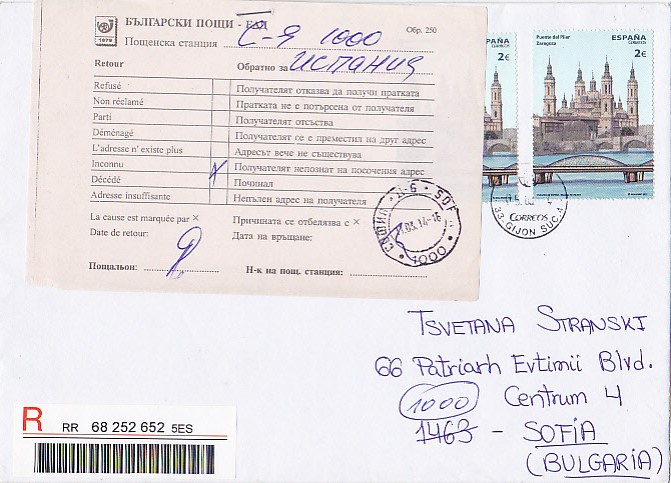 БЪЛГАРСКИ ПОЩИ - ЕАД
Обр. 250
1879
Пощенска станция С-Я 1000
Retour
Обратно за ИСПАНИЯ
Refusé Получателят отказва да получи пратката
Non réclamé Пратката не е потърсена от получателя
Parti Получателят отсъства
Déménagé Получателят се е преместил на друг адрес
L'adresse n' existe plus Адресът вече не съществува
Inconnu X Получателят непознат на посочения адрес
Décédé Починал
Adresse insuffisante Непълен адрес на получателя
La cause est marquée par × Причината се отбелязва с ×
Date de retour: Дата на връщане:
Пощальон: Н-к на пощ. станция:
1000
Puente del Pilar
Zaragoza
ESPAÑA
CORREOS
2€
2€
CORREOS
33 GIJON SUC.
TSVETANA STRANSKI
66 Patriarh Evtimii Blvd.
1000 Centrum 4
1463 - SOFIA
(BULGARIA)
R RR 68 252 652 5ES